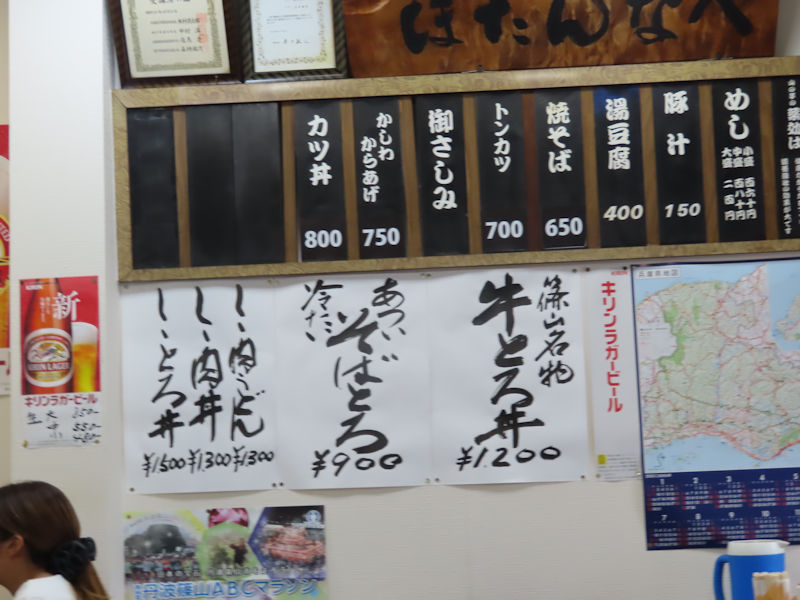 ぼたんなべ
めし
小盛 百六十円
中盛 百八十円
大盛 二百円
豚汁
150
湯豆腐
400
焼そば
650
トンカツ
700
御さしみ
かしわ
からあげ
750
カツ丼
800
篠山名物
牛とろ丼
¥1,200
あつい
冷たい
そばとろ
¥900
しし肉うどん
¥1,300
しし肉丼
¥1,300
ししとろ丼
¥1,500
KIRIN
新
KIRIN LAGER
キリンラガービール
生
大
850-
中
550-
小
480-
KIRIN
キリンラガービール
兵庫県地図
1 2 3 4 5
7 8 9 10 11
丹波篠山ABCマラソン